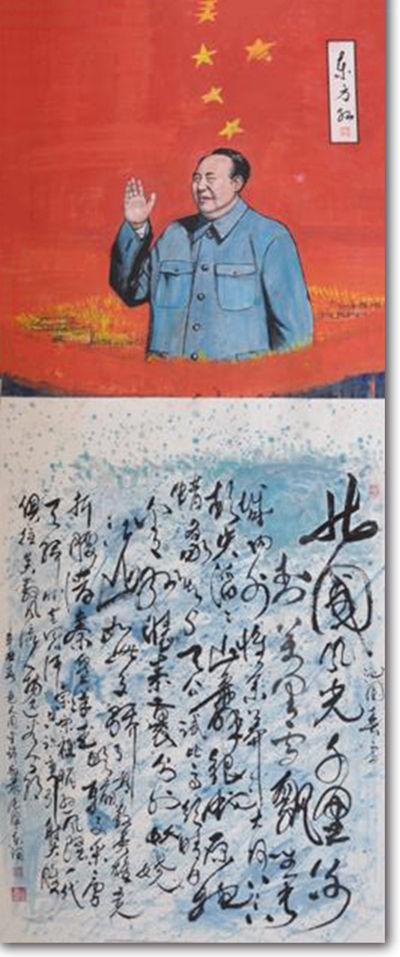 东方红
沁园春 雪
北国风光千里冰
封万里雪飘望长
城内外惟余莽莽大河上下
顿失滔滔山舞银蛇原驰
蜡象欲与天公试比高须晴日
看红装素裹分外妖娆
江山如此多娇引无数英雄竞
折腰惜秦皇汉武略输文采唐
宗宋祖稍逊风骚一代
天骄成吉思汗只识弯弓射大雕
俱往矣数风流人物还看今朝